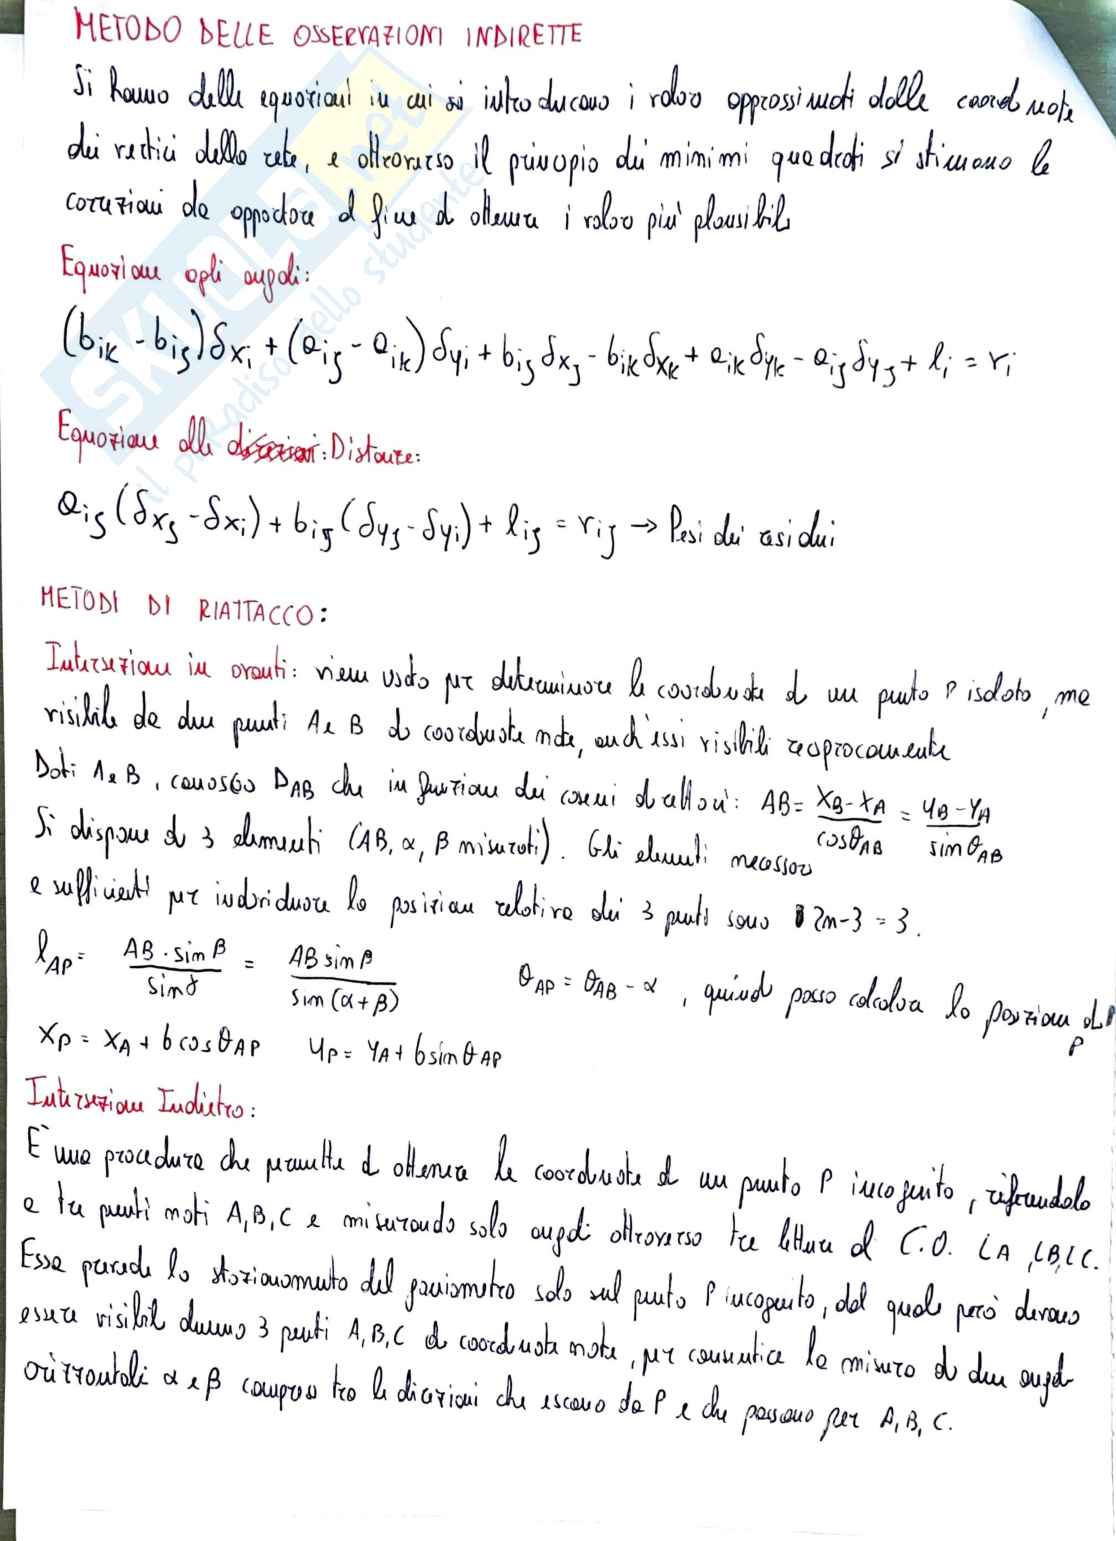 METODO DELLE OSSERVAZIONI INDIRETTE
Si hanno delle equazioni in cui si introducono i valori approssimati dalle coordinate
dei vertici della rete, e attraverso il principio dei minimi quadrati si stimano le
correzioni da apportare al fine di ottenere i valori più plausibili
Equazione agli angoli:
(bik - bij)δxi + (aij - aik)δyi + bijδxj - bikδxk + aikδyk - aijδyj + li = ri
Equazione alle direzioni: Distanze:
aij(δxj - δxi) + bij(δyj - δyi) + lij = rij → Pesi dei residui
METODI DI RIATTACCO:
Intersezione in avanti: viene usato per determinare le coordinate di un punto P isolato, ma
visibile da due punti A e B di coordinate note, anch'essi visibili reciprocamente
Dati A e B, conosco DAB che in funzione dei coseni direttori: AB = XB-XA/cosθAB = YB-YA/sinθAB
Si dispone di 3 elementi (AB, α, β misurati). Gli elementi necessari
e sufficienti per individuare la posizione relativa dei 3 punti sono 2n-3 = 3.
lAP = AB · sin β/sin γ = AB sin β/sin (α+β) θAP = θAB - α, quindi posso calcolare la posizione di P
P
XP = XA + b cos θAP YP = YA + b sin θAP
Intersezione Indietro:
È una procedura che permette di ottenere le coordinate di un punto P incognito, riferendolo
a tre punti noti A, B, C e misurando solo angoli attraverso tre letture al C.O. LA, LB, LC.
Essa prevede lo stazionamento del goniometro solo sul punto P incognito, dal quale però devono
essere visibili almeno 3 punti A, B, C di coordinate note, per consentire la misura di due angoli
orizzontali α e β compresi tra le direzioni che escono da P e che passano per A, B, C.
SKUOLA.net
il paradiso dello studente